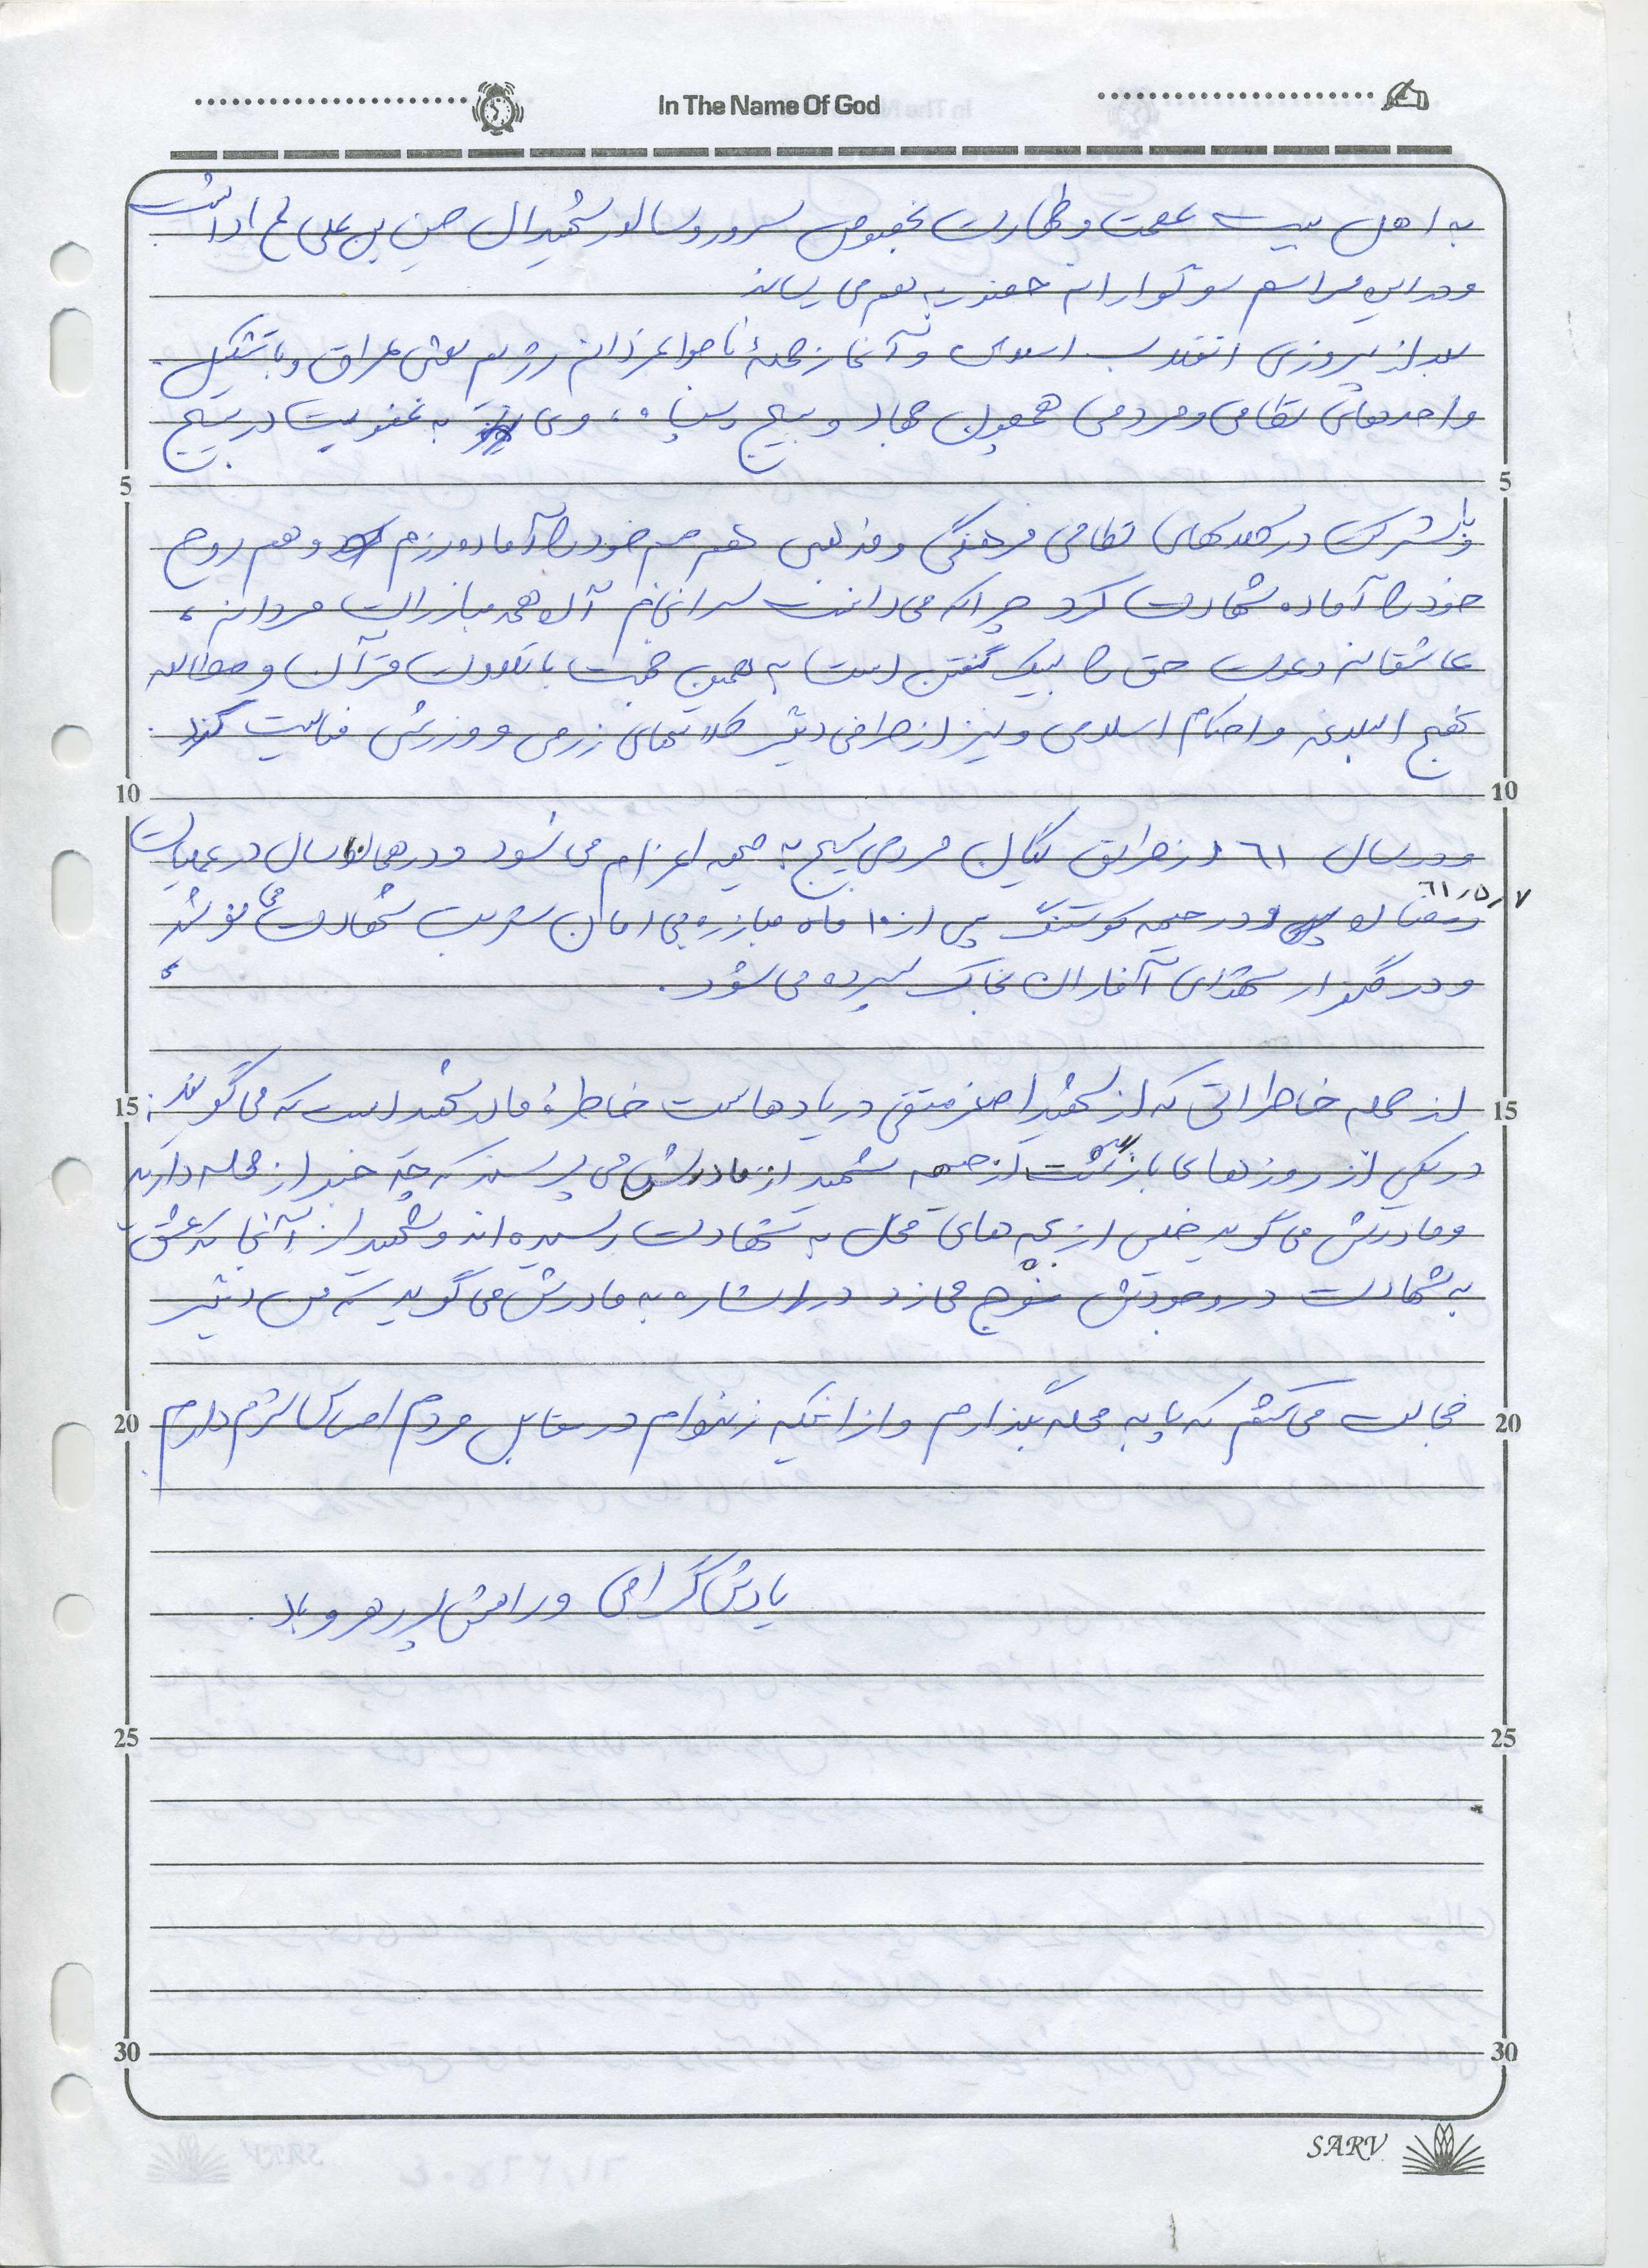 In The Name Of God
به اهل بیت عصمت و طهارت بخصوص سرور و سالار شهیدان حسین بن علی ع ارادت
و در این مراسم سوگوارانه حضور بهم می رساند
بعد از پیروزی انقلاب اسلامی و آغاز حملهٔ ناجوانمردانه رژیم بعثی عراق و با تشکیل
واحدهای نظامی و مردمی همچون جهاد و بسیج و سپاه ، وی نیز به عضویت در بسیج
و با شرکت در کلاسهای نظامی فرهنگی و مذهبی هم جسم خود را آماده رزم و هم روح
خود را آماده شهادت کرد چرا که می دانست سرانجام آن همه مبارزات مردانه ،
عاشقانه دعوت حق را لبیک گفتن است به همین جهت با تلاوت قرآن و مطالعه
نهج البلاغه و احکام اسلامی و نیز از طرفی دیگر کلاسهای رزمی و ورزشی فعالیت کرد .
و در سال ٦١ از طریق گیلان مردمی بسیج به جبهه اعزام می شود و در همان سال در عملیات
٦١/٥/٧
رمضان و در جبهه کوشک پس از ١٠ ماه مبارزه بی امان شربت شهادت می نوشد
و در گلزار شهدای آغاران بخاک سپرده می شود .
از جمله خاطراتی که از شهید اصغر متقی در یادهاست خاطرهٔ مادر شهید است که می گویند :
در یکی از روزهای بازگشت از جبهه شهید از مادرش می پرسند که چه خبر از محله دارید
و مادرش می گوید خیلی از بچه های محل به شهادت رسیده اند و شهید از آنجا که عشق
به شهادت در وجودش موج می زد در اشاره به مادرش می گوید که من دیگر
خجالت می کشم که پا به محله بگذارم و از اینکه زنده ام در مقابل مردم احساس شرم دارم
یادش گرامی و راهش پر رهرو باد .
5 5
10 10
15 15
20 20
25 25
30 30
SARV